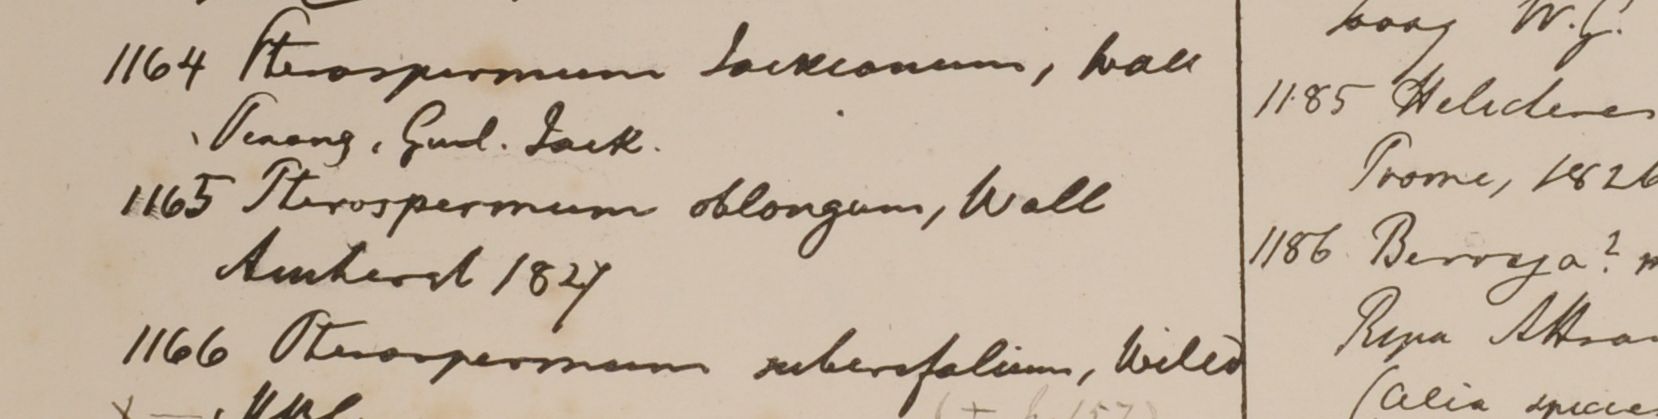 1164 Pterospermum Jackianum, Wall
Penang, Gul. Jack.
1165 Pterospermum oblongum, Wall
Amherst 1827
1166 Pterospermum suberifolium, Willd
W.G.
1185 Helicteres
Prome, 1826
1186 Berrya?
Ripa Attran